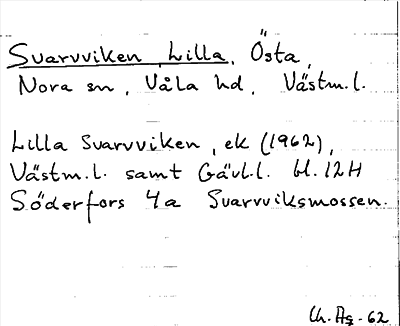 Svarvviken, Lilla, Östa,
Nora sn, Våla hd, Västm.l.
Lilla Svarvviken, ek (1962),
Västm.l. samt Gävl.l. bl. 12H
Söderfors 4a Svarvviksmossen.
Ch. Ag. 62